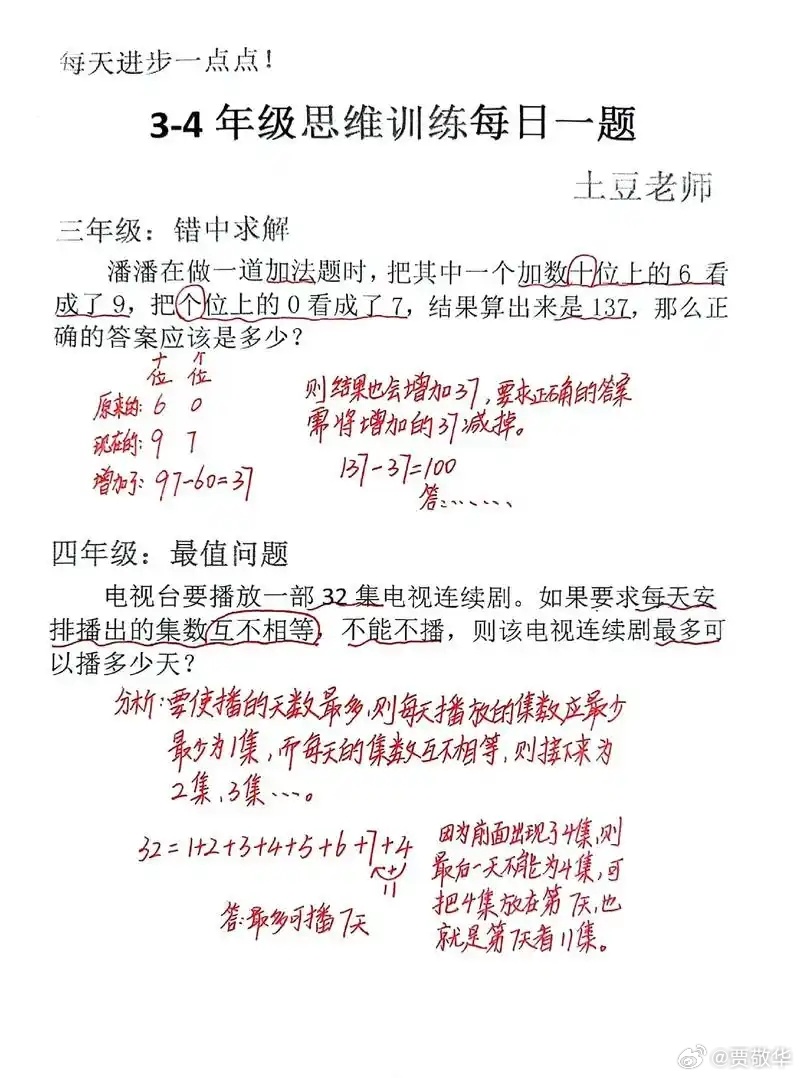 每天进步一点点！
3-4 年级思维训练每日一题
土豆老师
三年级：错中求解
潘潘在做一道加法题时，把其中一个加数十位上的 6 看
成了 9，把个位上的 0 看成了 7，结果算出来是 137，那么正
确的答案应该是多少？
十位 个位
原来的: 6 0
现在的: 9 7
增加了: 97-60=37
则结果也会增加37，要求正确的答案
需将增加的37减掉。
137-37=100
答:……
四年级：最值问题
电视台要播放一部 32 集电视连续剧。如果要求每天安
排播出的集数互不相等，不能不播，则该电视连续剧最多可
以播多少天？
分析:要使播的天数最多,则每天播放的集数应最少
最少为1集，而每天的集数互不相等，则接下来为
2集,3集…。
32=1+2+3+4+5+6+7+4
+
11
答:最多可播7天
因为前面出现了4集,则
最后一天不能为4集,可
把4集放在第7天,也
就是第7天看11集。
@贾敬华